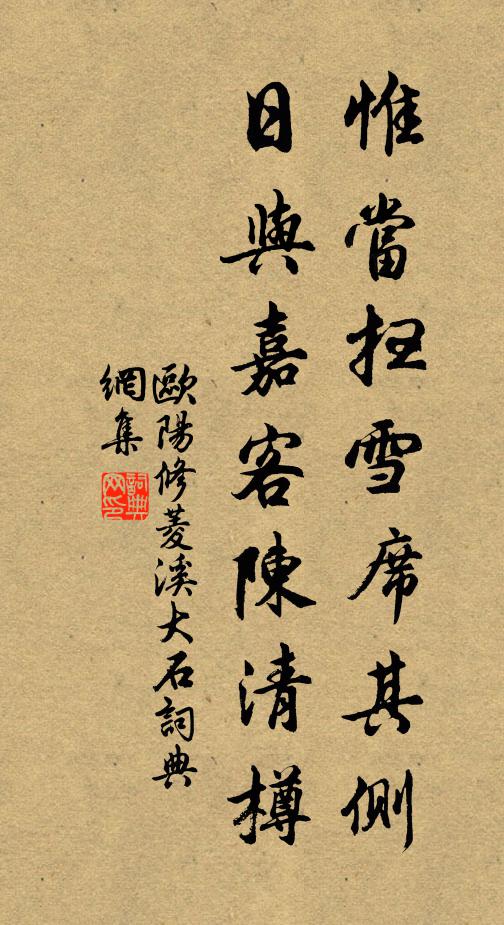 惟當掃雪席其側
日與嘉客陳清樽
歐陽修菱溪大石詞典
網集
詞典网印